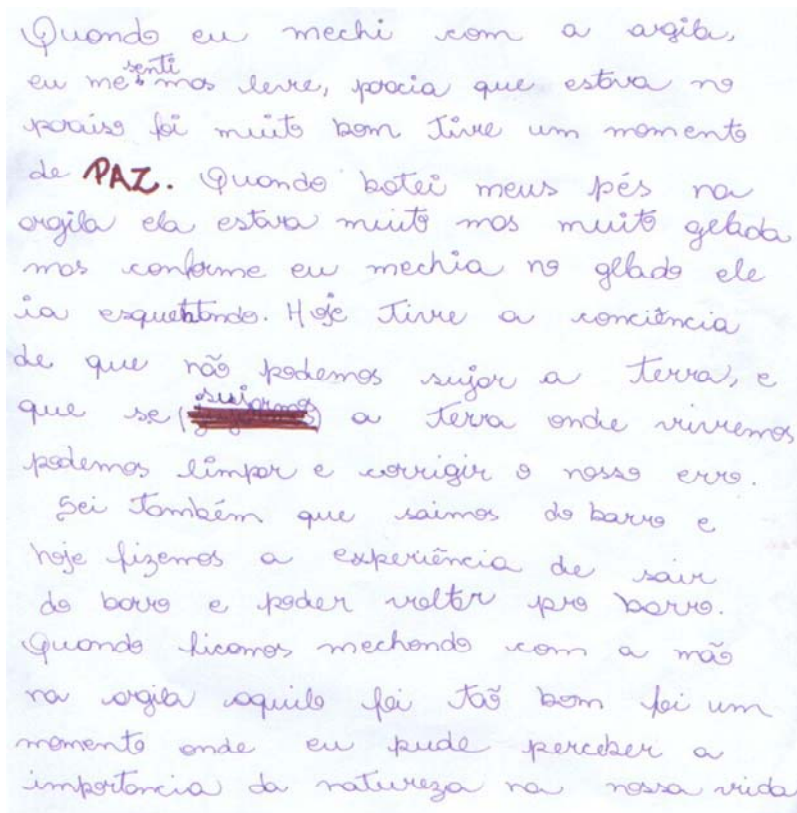 Quando eu mechi com a argila,
eu me senti mas leve, parcia que estava no
paraíso foi muito bom tive um momento
de PAZ. Quando botei meus pés na
argila ela estava muito mas muito gelada
mas conforme eu mechia no gelado ele
ia esquentando. Hoje tive a conciência
de que não podemos sujar a terra, e
que se (sujarmos) a terra onde vivremos
podemos limpar e corrigir o nosso erro.
Sei também que saimos do barro e
hoje fizemos a experiência de sair
do barro e poder voltar pro barro.
Quando ficamos mechendo com a mão
na argila aquilo foi tão bom foi um
momento onde eu pude perceber a
importancia da natureza na nossa vida